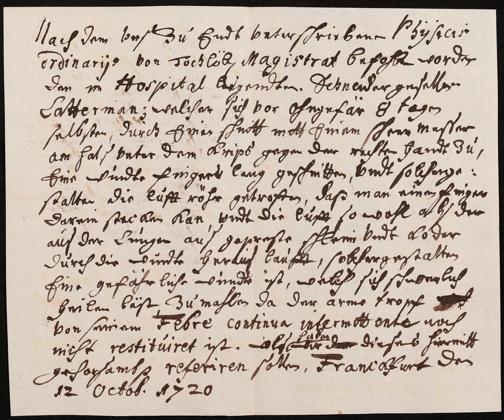 Nach dem uns Zu Endt unterschriebenen Physicis
ordinarijs von Hochlöbl. Magistrat befohlen worden
den in Hospital liegenden Schneidergesellen
Latterman, welcher sich vor ohngefär 8 tagen
selbsten, durch Einen schnitt mitt Einem scheer messer
am halß unter dem Kropf gegen der rechten handt Zu,
Eine wunde fingers lang geschnitten, undt solcher ge-
stalten die lufft röhr getroffen, daß man einen finger
darein stecken kan undt die lufft so wohl als der
auß der Lungen auß gepreste schleim undt Koder
durch die wunde herauß laufft, solchergestalten
Eine gefährliche wunde ist, welche sich schwerlich
heilen läst Zumahlen da der arme tropf
von seiner Febre continua intermittente noch
nicht restituiret ist. als dieses hiermitt
gehorsambst referiren sollen, Franckfurt den
12 Octob. 1720